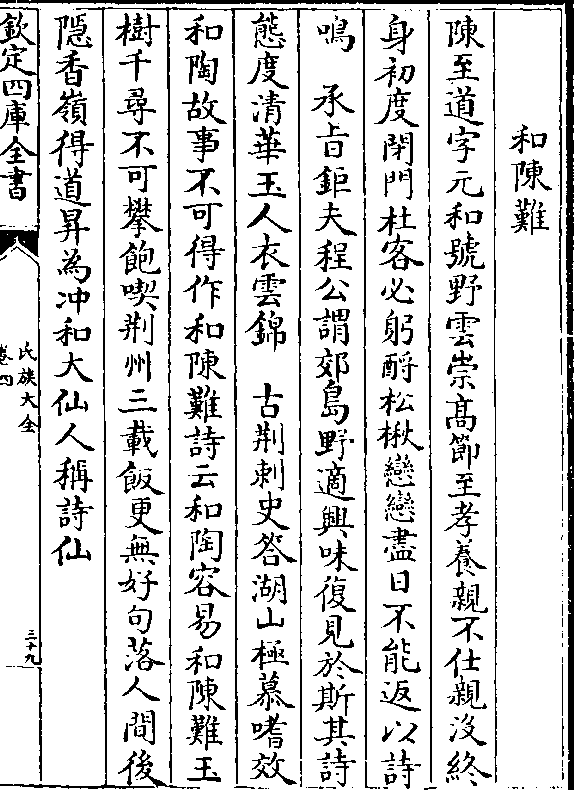 和陳難
陳至道字元和號野雲崇高節至孝養親不仕親沒終
身初度閉門杜客必躬酹松楸戀戀盡日不能返以詩
鳴　承旨鉅夫程公謂郊島野適興味復見於斯其詩
態度清華玉人衣雲錦　古荆刺史咎湖山極慕嗜效
和陶故事不可得作和陳難詩云和陶容易和陳難玉
樹千尋不可攀飽喫荆州三載飯更無好句落人間後
隠香嶺得道昇為冲和大仙人稱詩仙
欽定四庫全書
氏族大全
卷四
三十九